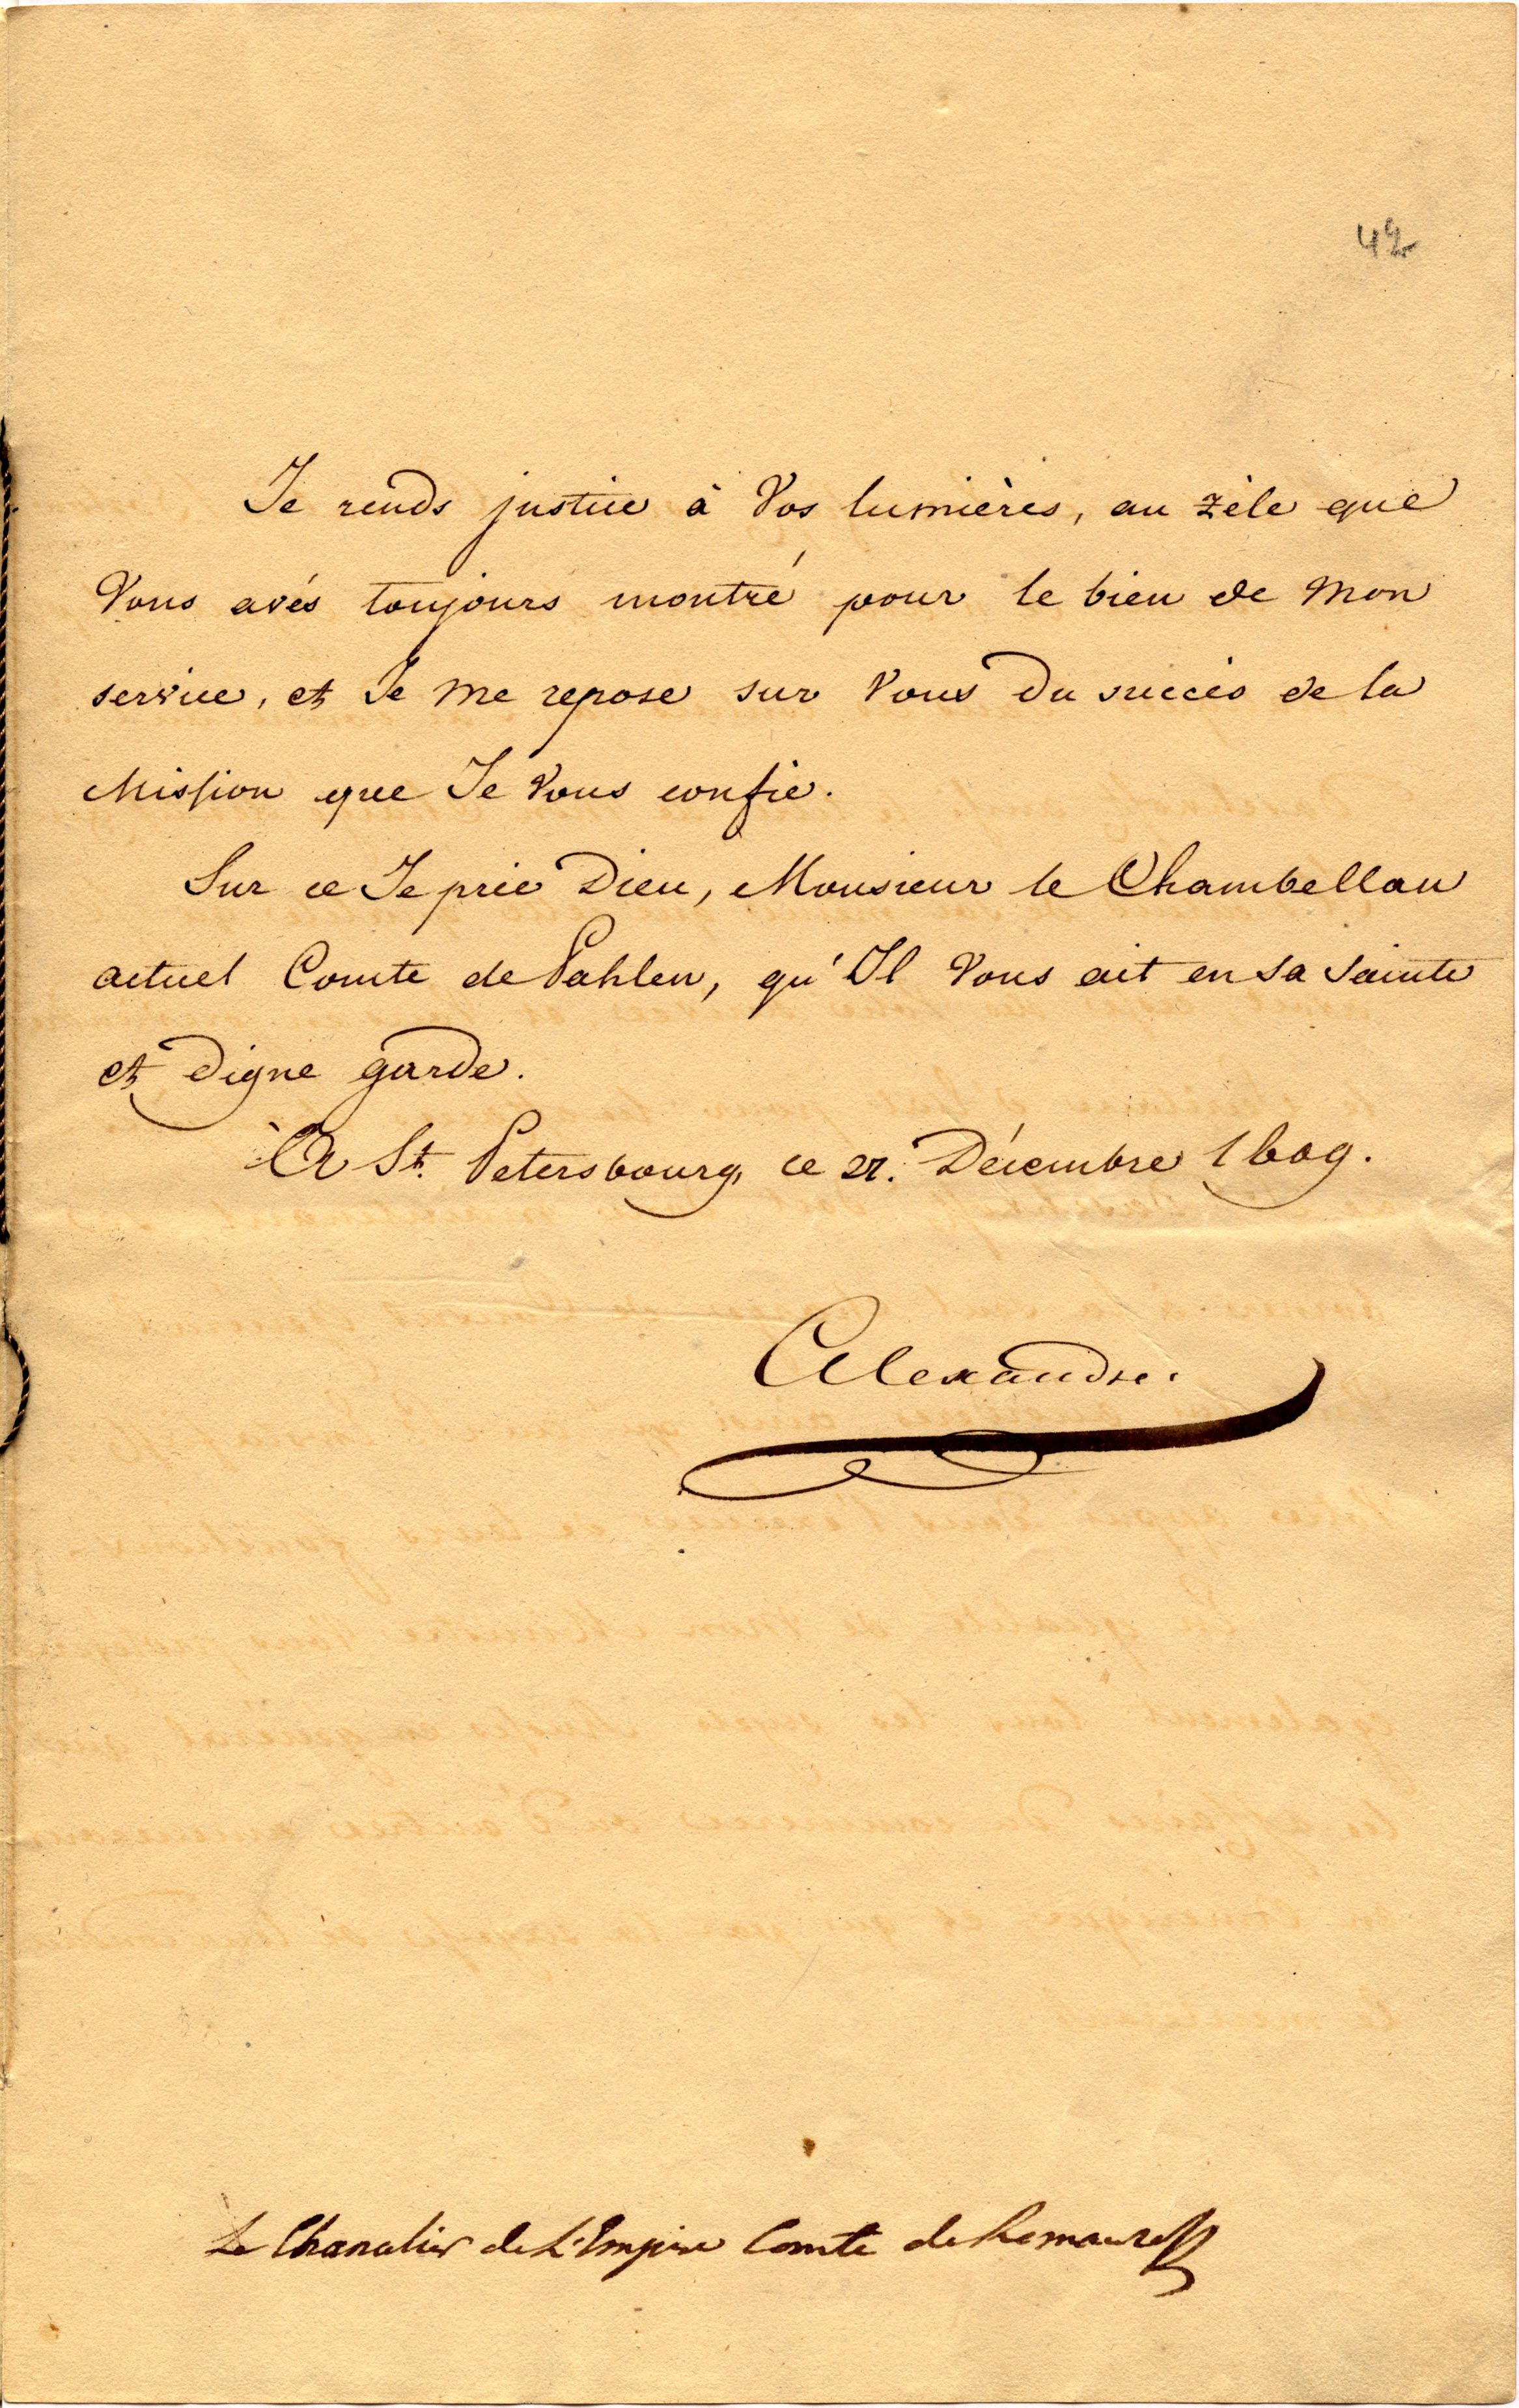 42
Je rends justice à Vos lumières, au zèle que
Vous avés toujours montré pour le bien de Mon
service, et Je Me repose sur Vous du succès de la
Mission que Je Vous confie.
Sur ce Je prie Dieu, Monsieur le Chambellan
actuel Comte de Pahlen, qu'Il Vous ait en Sa Sainte
et digne garde.
A St. Petersbourg, ce 27. Décembre 1809.
Alexandre.
Le Chancelier de L'Empire Comte de Romanzoff